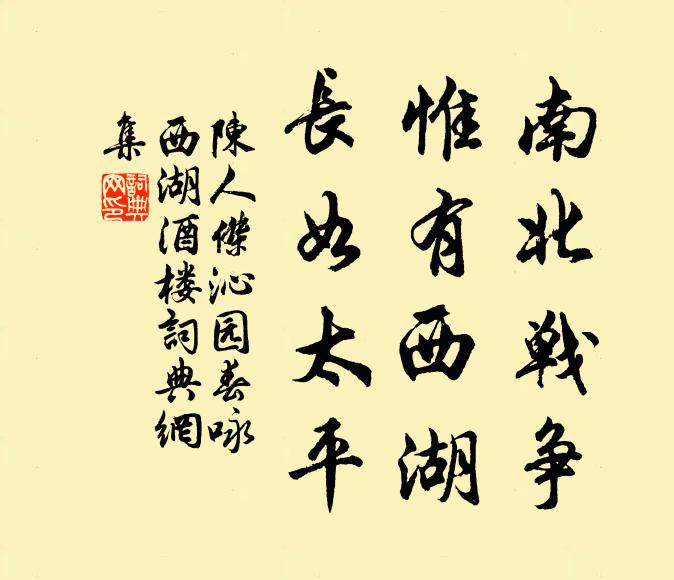 南北戦争
惟有西湖
長如太平
陳人傑沁园春咏
西湖酒楼詞典網
集
詞典
网印